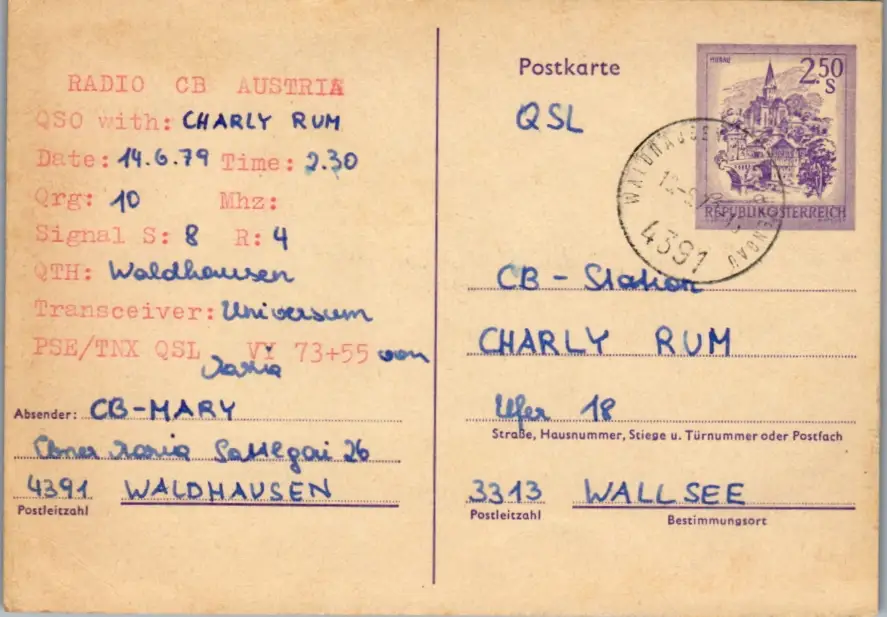 RADIO CB AUSTRIA
QSO with: CHARLY RUM
Date: 14.6.79 Time: 2.30
Qrg: 10 Mhz:
Signal S: 8 R: 4
QTH: Waldhausen
Transceiver: Universum
PSE/TNX QSL VY 73+55 von
Maria
Absender: CB-MARY
Ebner Maria Sattlgai 26
4391 WALDHAUSEN
Postleitzahl
Postkarte
QSL
MURAU
2.50
S
REPUBLIK ÖSTERREICH
WALDHAUSEN
4391
CB - Station
CHARLY RUM
Ufer 18
Straße, Hausnummer, Stiege u. Türnummer oder Postfach
3313 WALLSEE
Postleitzahl Bestimmungsort